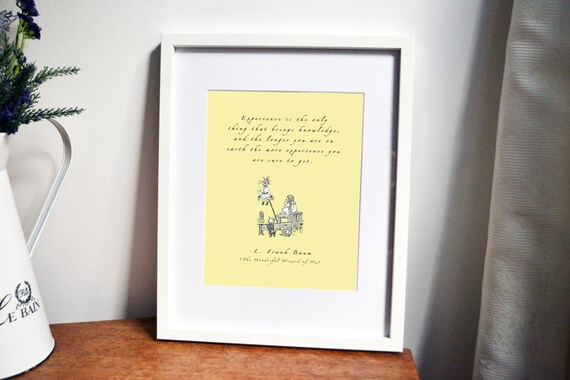 Experience is the only
thing that brings knowledge,
and the longer you are on
earth the more experience you
are sure to get.
-L. Frank Baum
(The Wonderful Wizard of Oz)
LE BAIN